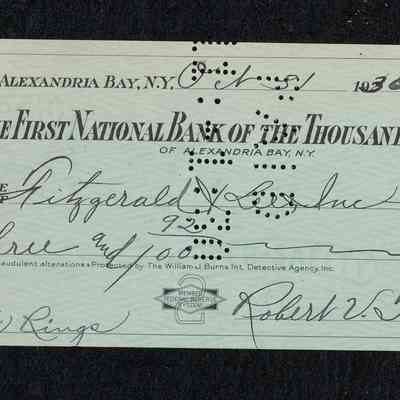 ALEXANDRIA BAY, N.Y. Oct 31 1936
THE FIRST NATIONAL BANK OF THE THOUSAND
OF ALEXANDRIA BAY, N.Y.
Fitzgerald & Lee Inc
Three and 92/100
fraudulent alterations • Protected by The William J Burns Int. Detective Agency, Inc.
MEMBER
FEDERAL RESERVE
SYSTEM
2
Robert V.
Rings